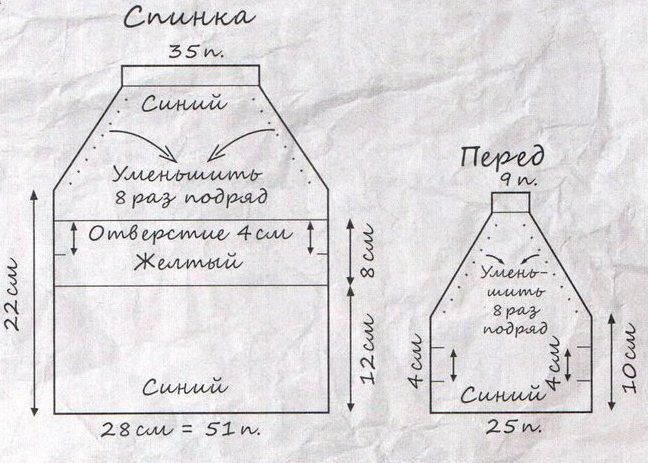 Спинка
35 п.
Синий
Уменьшить
8 раз подряд
Отверстие 4 см
Желтый
8 см
22 см
12 см
Синий
28 см = 51 п.
Перед
9 п.
Умень-
шить
8 раз
подряд
4 см
4 см
10 см
Синий
25 п.